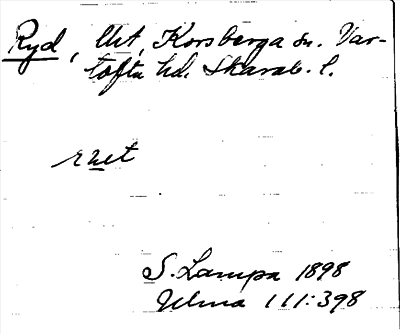 Ryd, Urt, Korsberga sn. Var-
tofta hd. Skarab. l.
ryet
S. Lampa 1898
Ulma 111:398